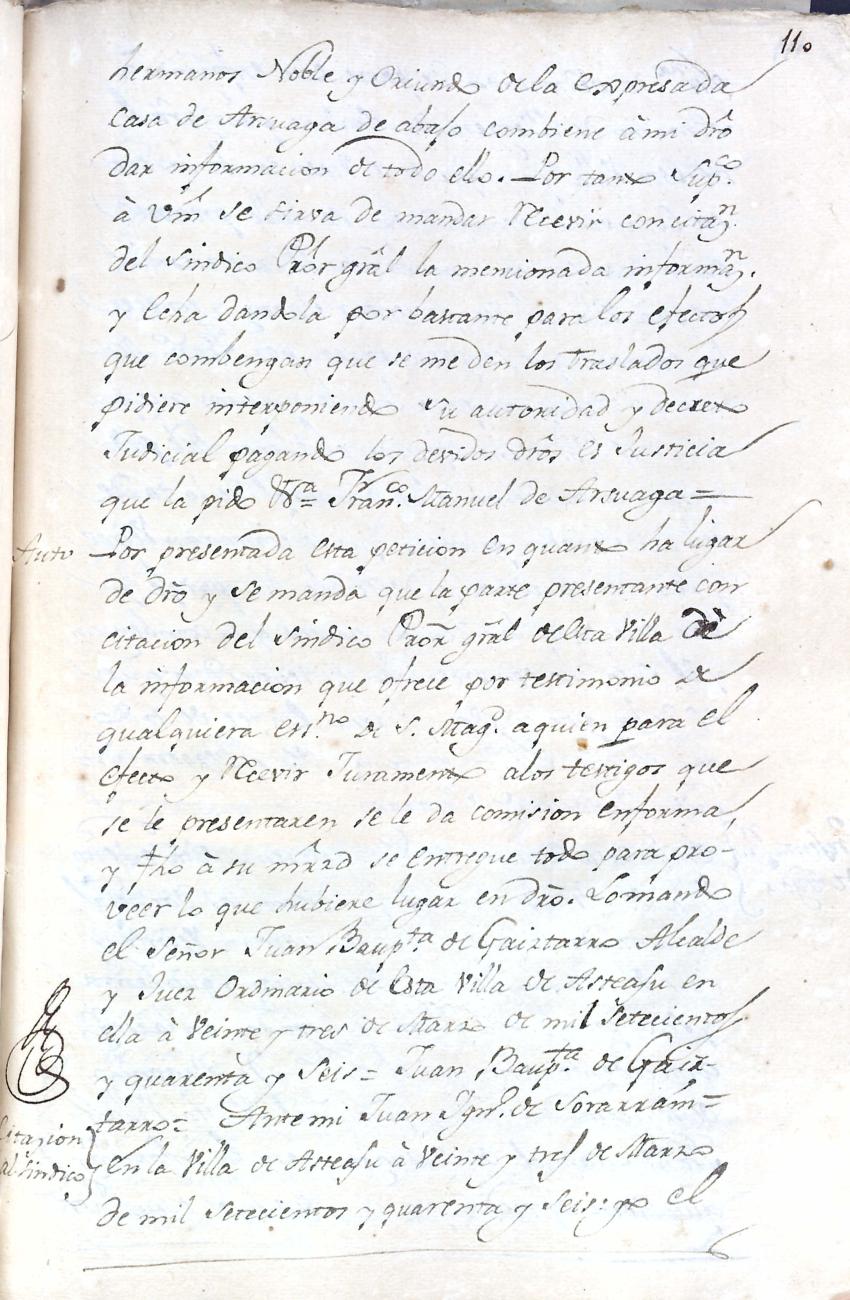 110
hermanos Noble y Oriundo de la expresada
Casa de Arsuaga de abajo combiene à mi dro
dar informacion de todo ello. Por tanto Supco.
à Vm se sirva de mandar Recevir con citan.
del Sindico Pror gral la mencionada informan.
y hecha dandola por bastante para los efectos
que combengan que se me den los traslados que
pidiere interponiendo su autoridad y decreto
Judicial pagando los devidos dros es Justicia
que la pido Franco. Manuel de Arsuaga =
Auto Por presentada esta peticion en quanto ha lugar
de dro y se manda que la parte presentante con
citacion del Sindico Pror gral de esta Villa dè
la informacion que ofrece por testimonio de
qualquiera essno. de S. Magd. aquien para el
efecto y Recevir Juramento a los testigos que
se le presentaren se le da comision en forma,
y fho à su mrzd se entregue todo para pro-
veer lo que hubiere lugar en dro. Lo mando
el Señor Juan Baupta. de Gaiztarro Alcalde
y Juez Ordinario de esta Villa de Asteasu en
ella à Veinte y tres de Marzo de mil setecientos
y quarenta y seis = Juan Baupta. de Gaiz-
tarro = Ante mi Juan Ygno. de Sorarrain =
Citazion al sindico En la Villa de Asteasu à Veinte y tres de Marzo
de mil setecientos y quarenta y seis: yo el